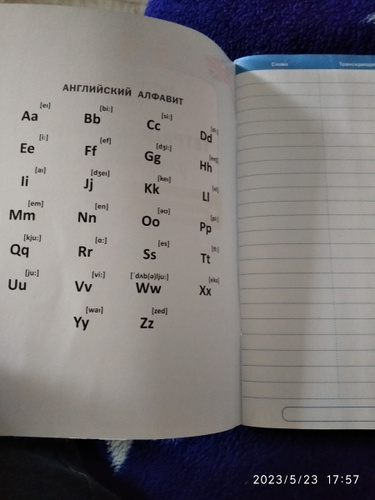 АНГЛИЙСКИЙ АЛФАВИТ
[eɪ] [bi:] [si:] [di:]
Aa Bb Cc Dd
[i:] [ef] [dʒi:]
Ee Ff Gg Hh
[aɪ] [dʒeɪ] [keɪ] [el]
Ii Jj Kk Ll
[em] [en] [əʊ] [pi:]
Mm Nn Oo Pp
[kju:] [ɑ:] [es] [ti:]
Qq Rr Ss Tt
[ju:] [vi:] [ˈdʌb(ə)lju:] [eks]
Uu Vv Ww Xx
[waɪ] [zed]
Yy Zz
Слово
2023/5/23 17:57